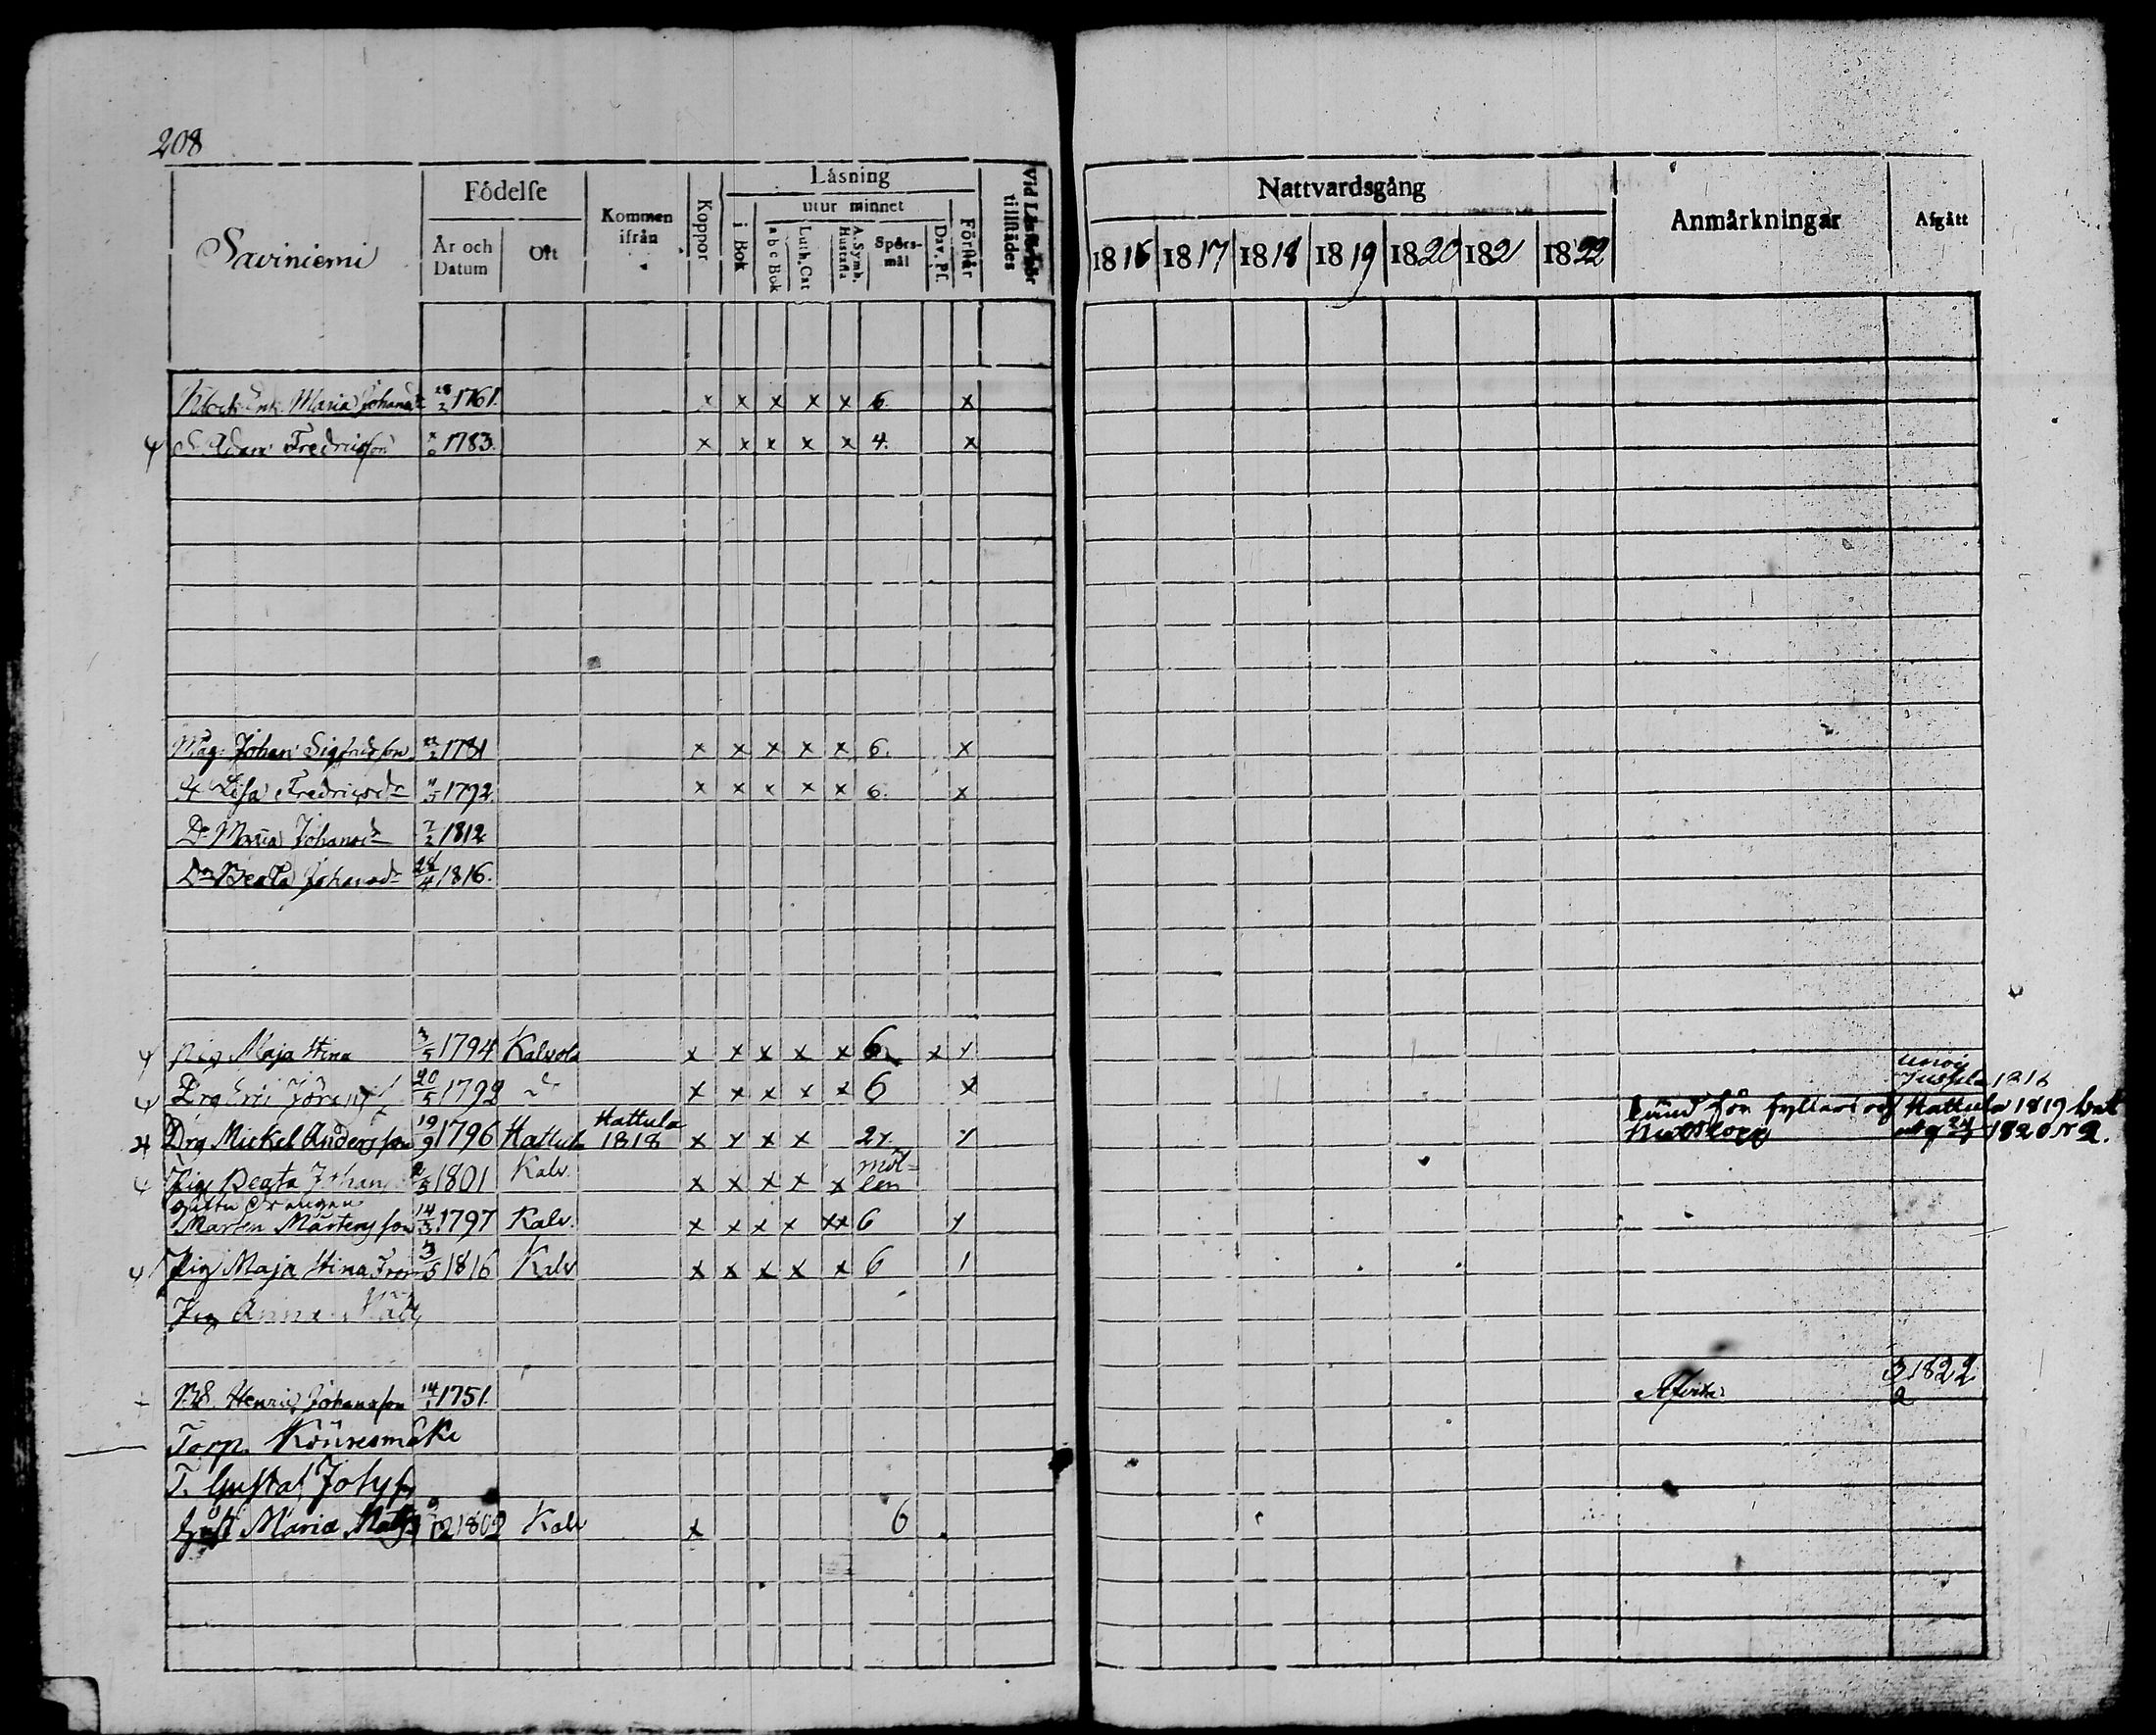 208
Saviniemi
Födelse
År och Datum
Ort
Kommen ifrån
Koppor
Läsning
i Bok
utur minnet
a b c Bok
Luth. Cat
A. Symb. Hustafla
Spörs-mål
Dav. Ps.
Förstår
Vid Läsförhör tillstädes
Nattvardsgång
1816 1817 1818 1819 1820 1821 1822
Anmärkningar
Afgått
Enk. Maria Johansdr 28/2 1761. x x x x x 6. x
S. Adam Fredricsson 1783. x x x x x 4. x
Måg. Johan Sigfridsson 1781 x x x x x 6. x
H Lisa Fredricsdr 1792. x x x x x 6. x
Dr Maria Johansdr 7/2 1812
Dr Beata Johansdr 28/4 1816.
Pig Maja Stina 3/5 1794 Kalvola x x x x x 6 x x
Drg Eric Jörans 20/5 1792 x x x x x 6 x 1816
Drg Mickel Andersson 19/9 1796 Hattula Hattula 1818 x x x x 2x x för fylleri Hattula 1819
1820 N 2.
Pig Beata Johans 2/5 1801 Kalv. x x x x x
Mårten Mårtensson 14/3 1797 Kalv. x x x x xx 6 x
Pig Maja Stina 3/5 1816 Kalv x x x x x 6
Pig Anna
Henric Johansson 14/1 1751. 3/2 1822
Torp. Kouvesmäki
T. Gustaf
Hust Maria Mats 12 1802 Kalv x 6